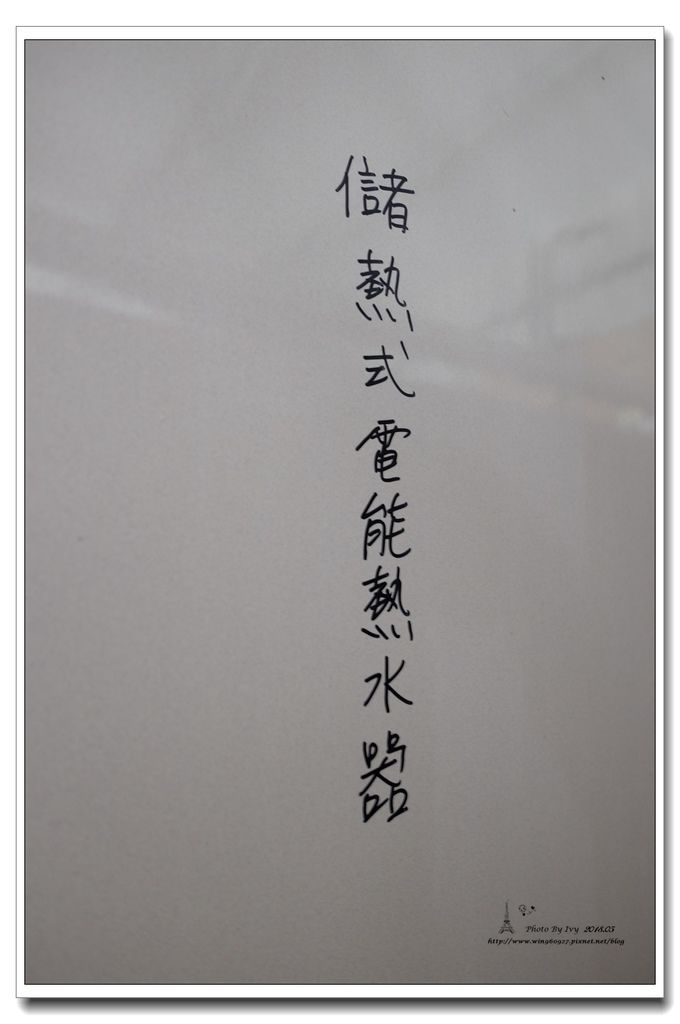 儲熱式電能熱水器
Photo By Ivy 2018.05
http://www.wing60927.pixnet.net/blog